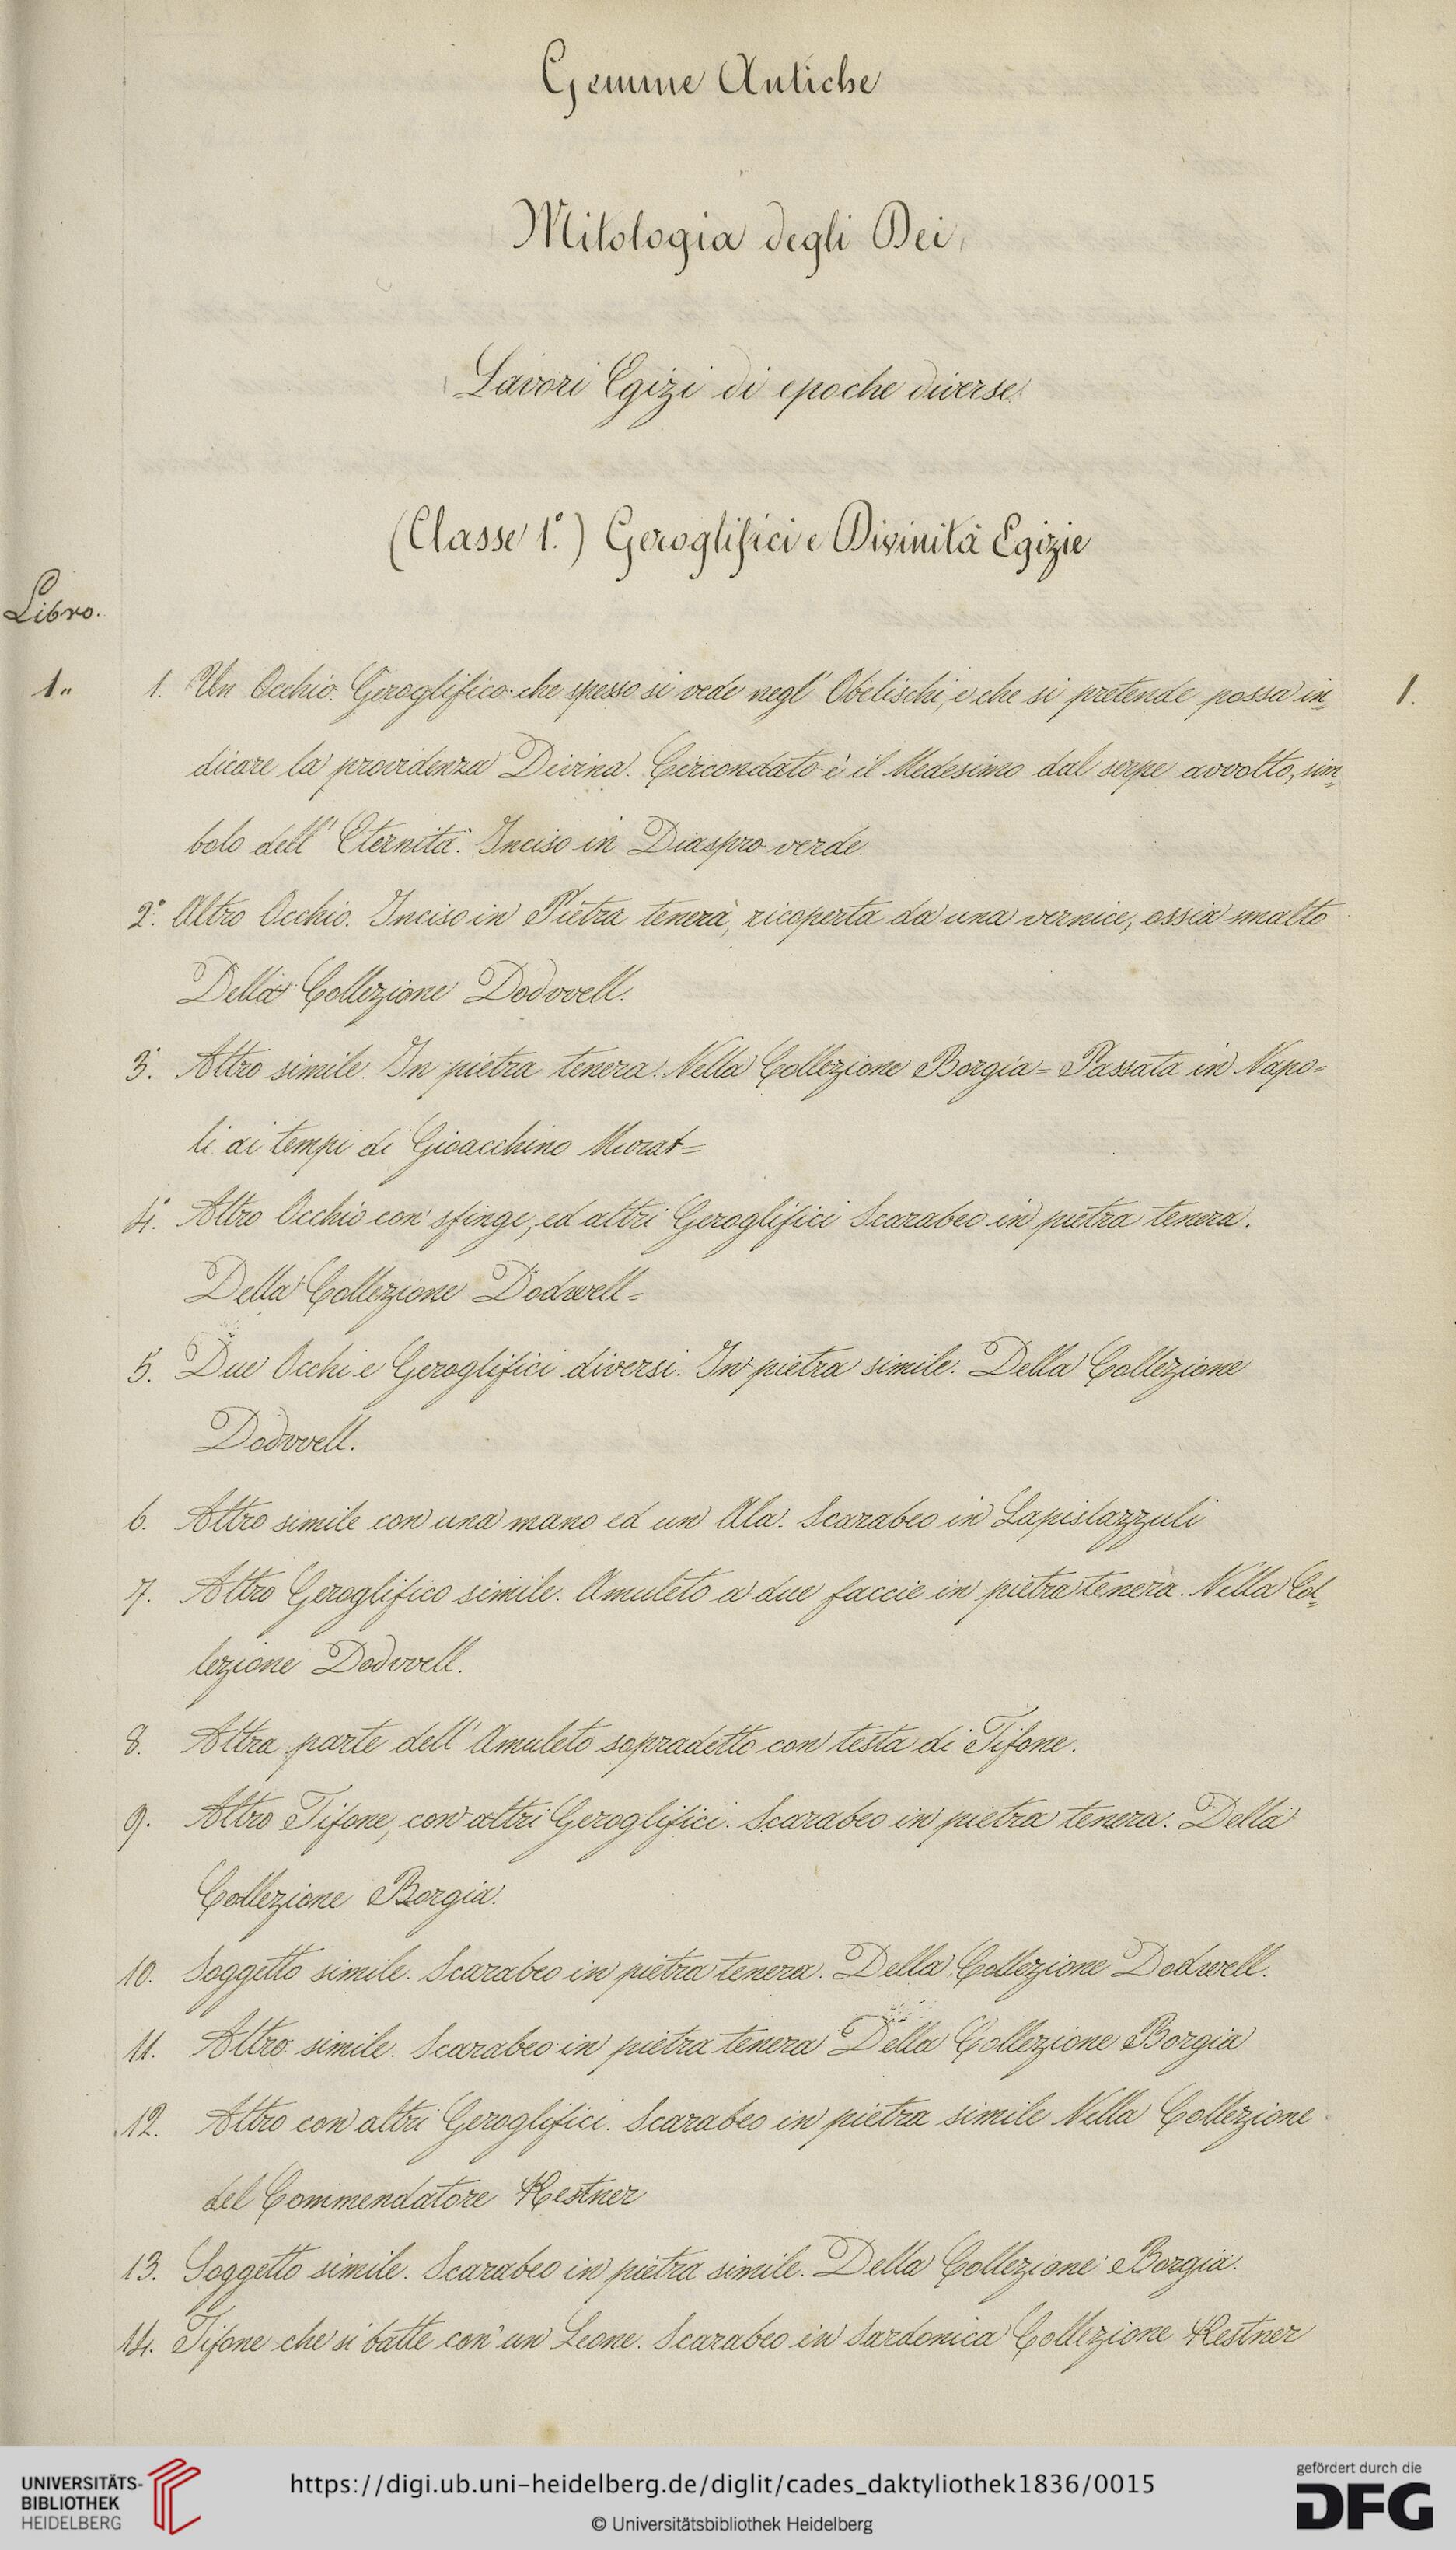 Gemme Antiche
Mitologia degli Dei
Lavori Egizi di epoche diverse
(Classe 1.°) Geroglifici e Divinità Egizie
Libro.
1.. 1. Un Occhio. Geroglifico che spesso si vede negl' Obelischi, e che si pretende possa in= 1.
dicare la providenza Divina. Circondato è il Medesimo dal serpe avvolto, sim=
bolo dell' Eternità. Inciso in Diaspro verde.
2.° Altro Occhio. Inciso in Pietra tenera, ricoperta da una vernice, ossia smalto
Della Collezione Dodwell.
3. Altro simile. In pietra tenera. Nella Collezione Borgia = Passata in Napo=
li ai tempi di Gioacchino Murat =
4. Altro Occhio con sfinge, ed altri Geroglifici Scarabeo in pietra tenera.
Della Collezione Dodwell =
5. Due Occhi e Geroglifici diversi. In pietra simile. Della Collezione
Dodwell.
6. Altro simile con una mano ed un Ala. Scarabeo in Lapislazzuli
7. Altro Geroglifico simile. Amuleto a due faccie in pietra tenera. Nella Col=
lezione Dodwell.
8. Altra parte dell' Amuleto sopradetto con testa di Tifone.
9. Altro Tifone, con altri Geroglifici. Scarabeo in pietra tenera. Della
Collezione Borgia.
10. Soggetto simile. Scarabeo in pietra tenera. Della Collezione Dodwell.
11. Altro simile. Scarabeo in pietra tenera Della Collezione Borgia
12. Altro con altri Geroglifici. Scarabeo in pietra simile Nella Collezione
del Commendatore Kestner
13. Soggetto simile. Scarabeo in pietra simile. Della Collezione Borgia.
14. Tifone che si batte con un Leone. Scarabeo in Sardonica Collezione Kestner
UNIVERSITÄTS-
BIBLIOTHEK
HEIDELBERG
https://digi.ub.uni-heidelberg.de/diglit/cades_daktyliothek1836/0015
© Universitätsbibliothek Heidelberg
gefördert durch die
DFG